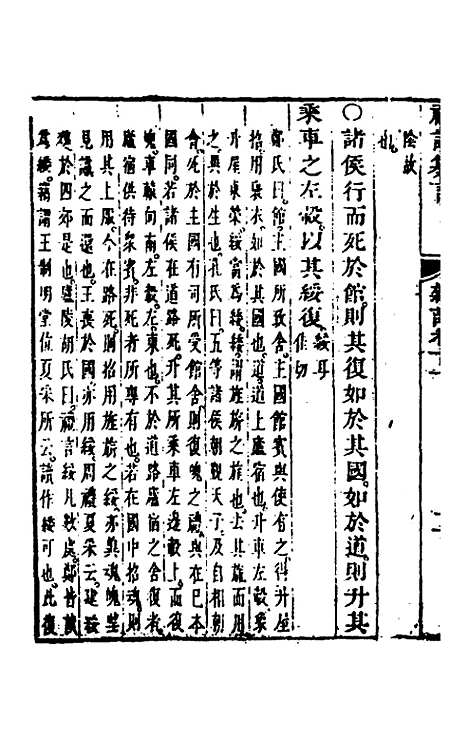 陰故
也
○諸侯行而死於館則其復如於其國如於道則升其
乘車之左轂以其綏復綏耳隹切
鄭氏曰館主國所致舍主國館賓與使有之得升屋
招用褒衣如於其國也道道上廬宿也升車左轂象
升屋東榮綏當為緌緌旌旂之旄也去其旒而用
之異於生也孔氏曰五等諸侯朝覲天子及自相朝
會死於主國有司所受館舍則復魄之禮與在已本
國同若諸侯在道路死升其所乘車左邊轂上而復
魄車轅向南左轂在東也不於道路廬宿之舍復者
廬宿供待衆賓非死者所專有也若在國中招魂則
用其上服今在路死則招用旌旂之綏亦冀魂魄望
見識之而還也王喪於國亦用綏周禮夏采云建綏
復於四郊是也廬陵胡氏曰禮言綏凡數處鄭皆讀
為緌竊謂王制明堂位夏采所云讀作緌可也此復